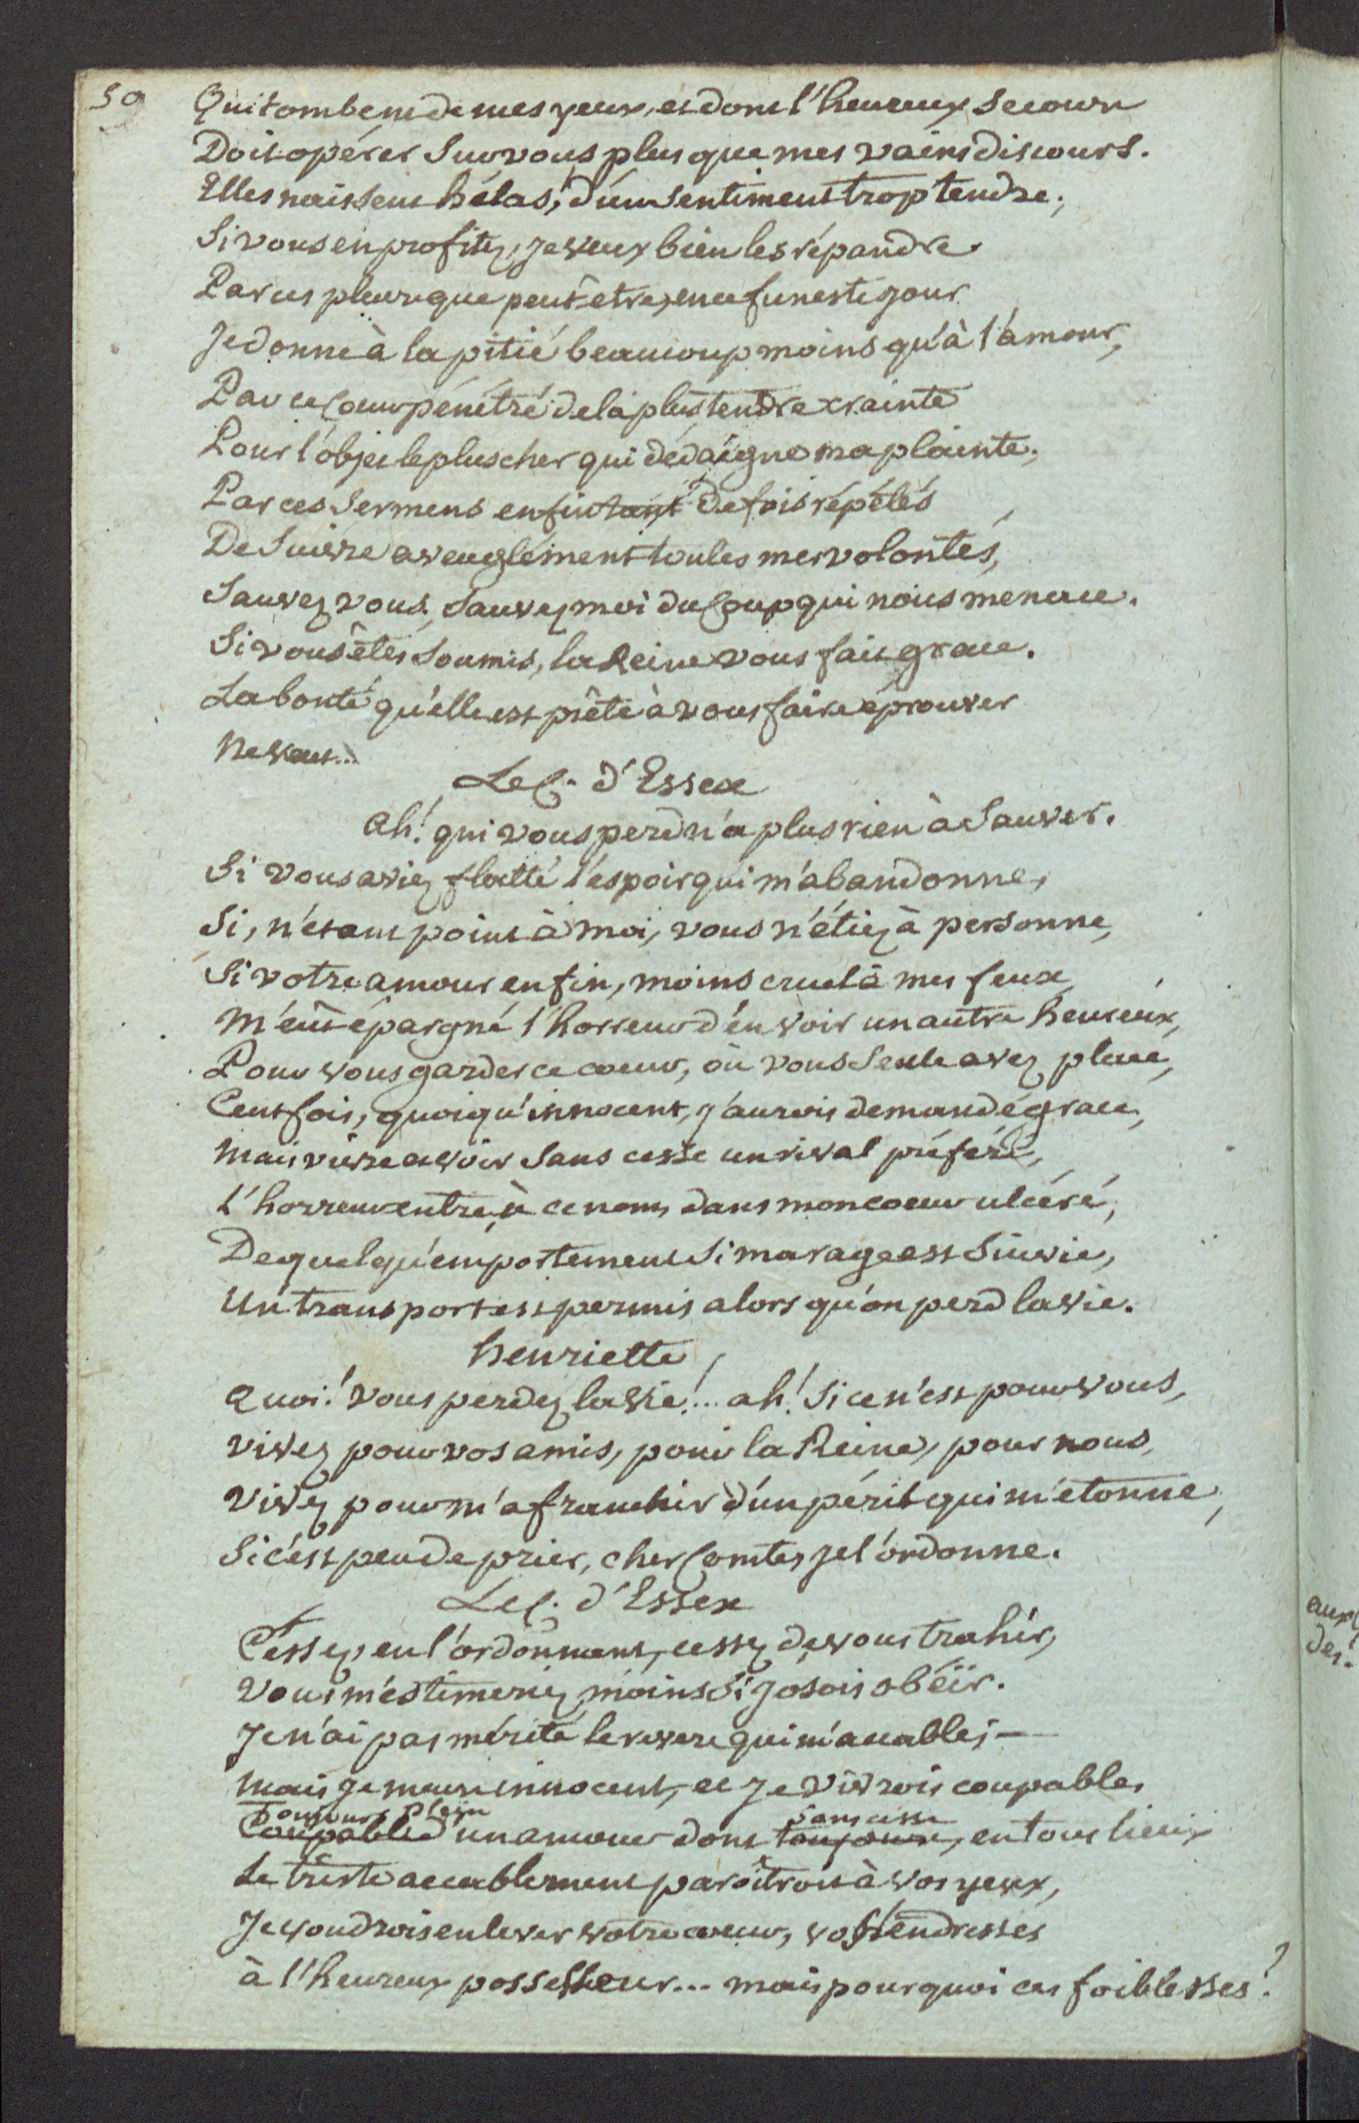 50
Qui tombent de mes yeux, et dont l'heureux secours
Doit opérer sur vous plus que mes vains discours.
Elles naissent hélas, d'un sentiment trop tendre;
Si vous en profitez, je veux bien les répandre.
Par ces pleurs que peut-etre, en ce funeste jour
Je donne à la pitié beaucoup moins qu'à l'amour,
Par ce Coeur pénétré de la plus tendre crainte
Pour l'objet le plus cher qui dédaigne ma plainte,
Par ces sermens enfin tant de fois répétés
De suivre aveuglément toutes mes volontés,
Sauvez vous, sauvez moi du Coup qui nous menace.
Si vous êtes soumis, la Reine vous fait grace.
La bonté qu'elle est prête à vous faire éprouver
Ne veut...
Le C. d'Essex
ah! qui vous perd n'a plus rien à sauver.
Si vous aviez flatté l'espoir qui m'abandonne,
Si, n'étant point à moi, vous n'étiez à personne,
Si votre amour enfin, moins cruel à mes feux
M'eût épargné l'horreur d'en voir un autre heureux,
Pour vous garder ce coeur, où vous seule avez place,
Cent fois, quoiqu'innocent, j'aurois demandé grace,
Mais vivre a voir sans cesse un rival préféré,
L'horreur entre, à ce nom, dans mon coeur ulcéré,
De quelqu'emportement si ma rage est suivie,
Un transport est permis alors qu'on perd la vie.
henriette
Quoi! vous perdez la vie!... ah! si ce n'est pour vous,
vivez pour vos amis, pour la Reine, pour nous,
Vivez pour m'afranchir d'un péril qui m'étonne,
Si c'est peu de prier, cher Comte, je l'ordonne.
Le C. d'Essex
Cessez, en l'ordonnant, cessez de vous trahir,
Vous m'estimeriez moins si j'osois obéïr.
Je n'ai pas mérité le revers qui m'accable;
Mais je meurs innocent, et je vivrois coupable,
Toujours plein sans cesse
Coupable d'un amour dont toujours, en tous lieux
Le triste accablement paroîtroit à vos yeux,
Je voudrois enlever votre coeur, vos tendresses
à l'heureux possesseur... mais pourquoi ces foiblesses?